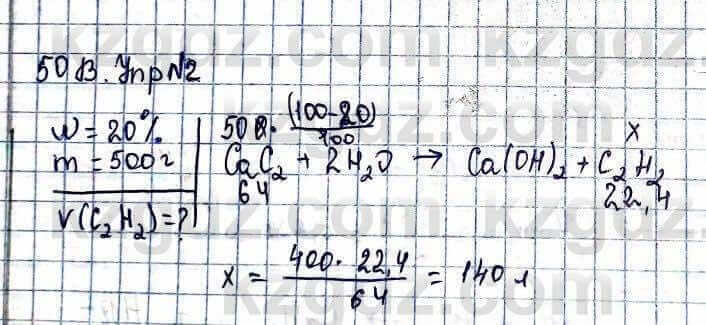 50 B. Упр №2
w = 20%
m = 500 г
V(C₂H₂) = ?
500 · (100-20)/100 x
CaC₂ + 2H₂O → Ca(OH)₂ + C₂H₂
64 22,4
x = 400 · 22,4 / 64 = 140 л
kzgdz.com